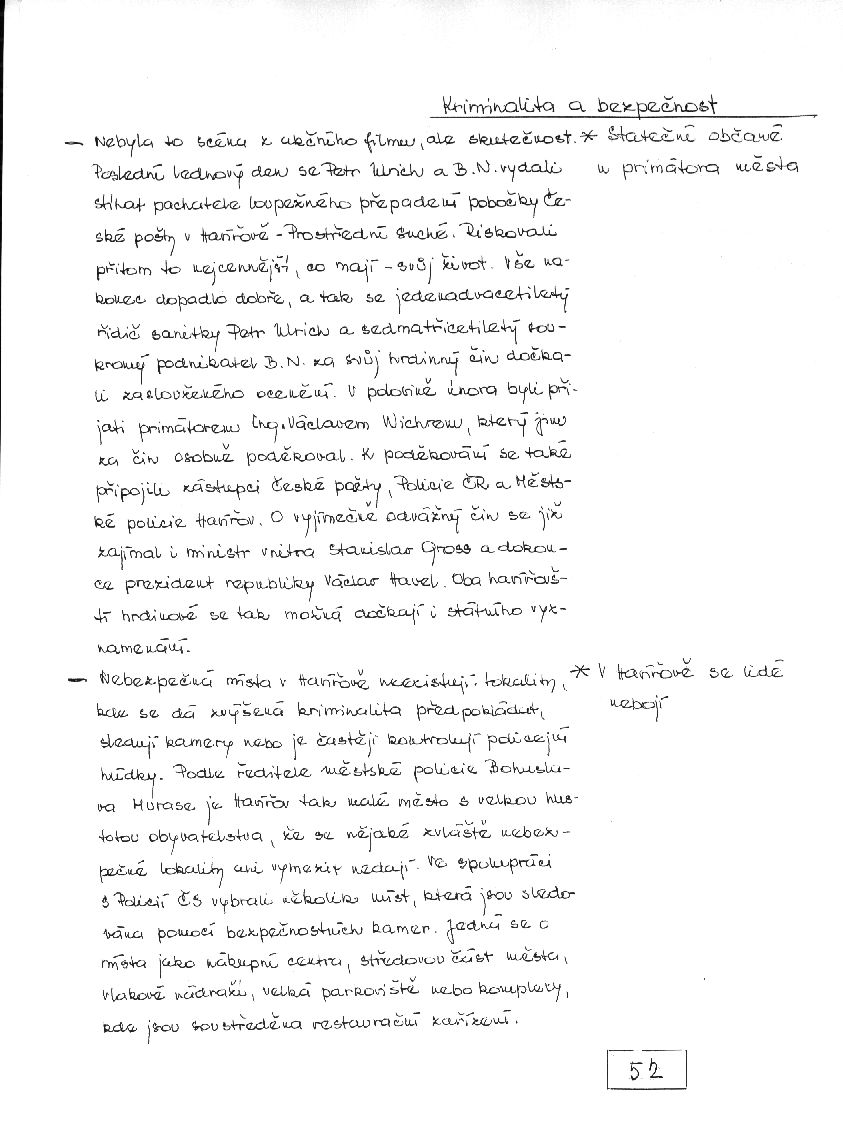 Kriminalita a bezpečnost
— Nebyla to scéna z akčního filmu, ale skutečnost. * Stateční občané
Poslední lednový den se Petr Ulrich a B.N. vydali u primátora města
stíhat pachatele loupežného přepadení pobočky Če-
ské pošty v Havířově - Prostřední Suché. Riskovali
přitom to nejcennější, co mají - svůj život. Vše na-
konec dopadlo dobře, a tak se jedenadvacetiletý
řidič sanitky Petr Ulrich a sedmatřicetiletý sou-
kromý podnikatel B.N. za svůj hrdinný čin dočka-
li zaslouženého ocenění. V polovině února byli při-
jati primátorem Ing. Václavem Wichrem, který jim
za čin osobně poděkoval. K poděkování se také
připojili zástupci České pošty, Policie ČR a Městs-
ké policie Havířov. O vyjímečně odvážný čin se již
zajímal i ministr vnitra Stanislav Gross a dokon-
ce prezident republiky Václav Havel. Oba havířovš-
tí hrdinové se tak možná dočkají i státního vyz-
namenání.
— Nebezpečná místa v Havířově neexistují. Lokality, * V Havířově se lidé
kde se dá zvýšená kriminalita předpokládat, nebojí
sledují kamery nebo je častěji kontrolují policejní
hlídky. Podle ředitele městské policie Bohusla-
va Murase je Havířov tak malé město s velkou hus-
totou obyvatelstva, že se nějaké zvláště nebez-
pečné lokality ani vymezit nedají. Ve spolupráci
s Policií ČS vybrali několik míst, která jsou sledo
vána pomocí bezpečnostních kamer. Jedná se o
místa jako nákupní centra, středovou část města,
vlakové nádraží, velká parkoviště nebo komplety,
kde jsou soustředěna restaurační zařízení.
52